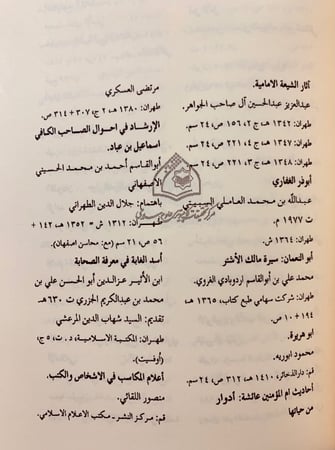 آثار الشيعة الامامية.
عبدالعزيز عبدالحسين آل صاحب الجواهر.
طهران: ١٣٤٢ هـ، ج ٢، ١٥٦ ص، ٢٤ سم.
طهران: ١٣٤٧ هـ، ج ٤، ٢٢١ ص، ٢٤ سم.
طهران: ١٣٤٨ هـ، ج ٣، ٢٢١ ص، ٢٤ سم.
أبوذر الغفاري
عبدالله بن محمد العاملي السبيتي
ت ١٩٧٧ م.
طهران: ١٣٦٤ ش.
أبو النعمان: سيرة مالك الأشتر
محمد علي بن أبوالقاسم اردوبادي الغروي.
طهران: شركت سهامي طبع كتاب، ١٣٦٥ هـ،
١٩٤ + ١٠ ص.
ابوهريرة.
محمود ابوريه.
قم: دارالذخائر، ١٤١٠ هـ، ٣١٢ ص، ٢٤ سم.
أحاديث ام المؤمنين عائشة: أدوار
من حياتها
مرتضى العسكري
طهران: ١٣٨٠ هـ، ٢ ج، ٣٠٧ + ٣١٤ ص.
الإرشاد في احوال الصاحب الكافي
اسماعيل بن عباد.
أبوالقاسم أحمد بن محمد الحسيني
الأصفهاني
باهتمام: جلال الدين الطهراني
طهران: ١٣١٢ ش = ١٣٥٢ هـ، ١٤٢ +
٥٦ ص، ٢١ سم (مع: محاسن اصفهان).
أسد الغابة في معرفة الصحابة
ابن الأثير عزالدين أبو الحسن علي بن
محمد بن عبدالكريم الجزري ت ٦٣٠ هـ
تقديم: السيد شهاب الدين المرعشي
طهران: المكتبة الاسلامية، د. ت، ٥ ج،
(أوفسيت).
أعلام المكاسب في الاشخاص والكتب.
منصور اللقائي.
قم: مركز النشر ـ مكتب الاعلام الاسلامي.